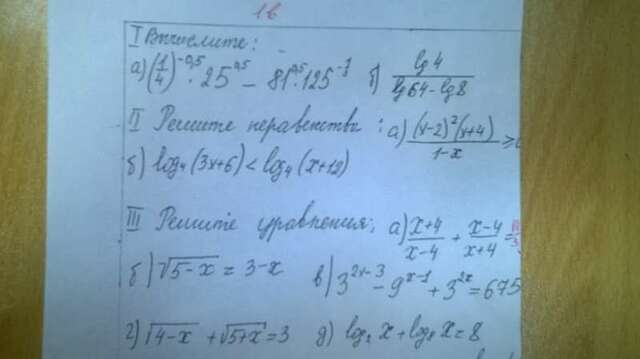 1в
I Вычислите:
а) (1/4)^-0,5 · 25^0,5 − 81^0,5 · 125^-1/3 б) lg 4 / lg 64 − lg 8
II Решите неравенства: а) (x−2)²(x+4) / 1−x ≥
б) log₄(3x+6) < log₄(x+12)
III Решите уравнения: а) x+4 / x−4 + x−4 / x+4 =
б) √5−x = 3−x в) 3^2x−3 − 9^x−1 + 3^2x = 675
г) √4−x + √5+x = 3 д) log₂ x + log₈ x = 8